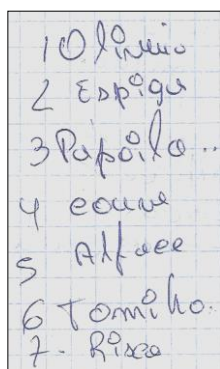 1 Olinnio
2 Espiga
3 Papoila..
4 couve
5 Alface
6 Tomilho.
7. Risco